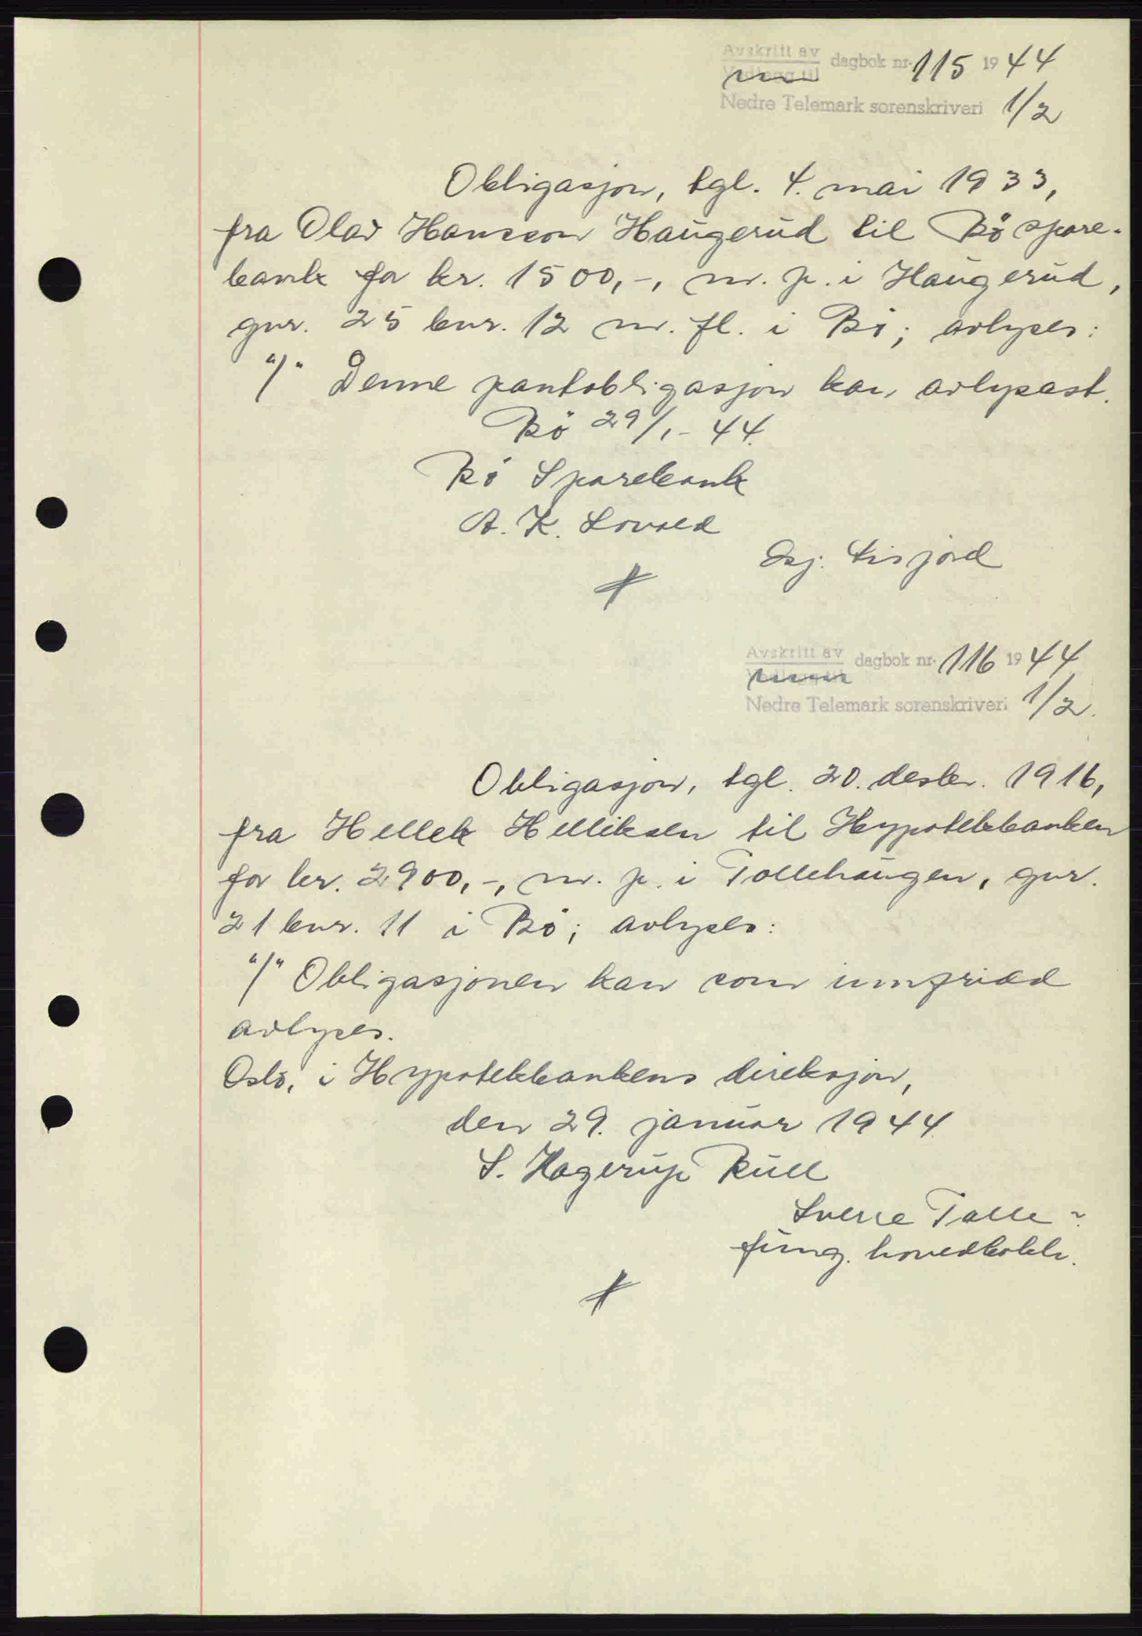 Avskrift av dagbok nr. 115 1944
Vedlegg til
Nedre Telemark sorenskriveri 1/2
Obligasjon, tgl. 4. mai 1933,
fra Olav Hansson Haugerud til Bø spare-
bank for kr. 1500,-, m. p. i Haugerud,
gnr. 25 bnr. 12 m. fl. i Bø; avlyses:
"/" Denne pantobligasjon kan avlysast.
Bø 29/1-44.
Bø Sparebank
A. K. Lovald
Asj. Lisjord
Avskrift av dagbok nr. 116 1944
Nedre Telemark sorenskriveri 1/2.
Obligasjon, tgl. 20. desbr. 1916,
fra Hellek Helliksen til Hypotekbanken
for kr. 2900,-, m. p. i Tollehaugen, gnr.
21 bnr. 11 i Bø; avlyses:
"/" Obligasjonen kan som innfridd
avlyses.
Oslo, i Hypotekbankens direksjon,
den 29. januar 1944
S. Hagerup Bull
Sverre Tolle
fung. hovedbokh.